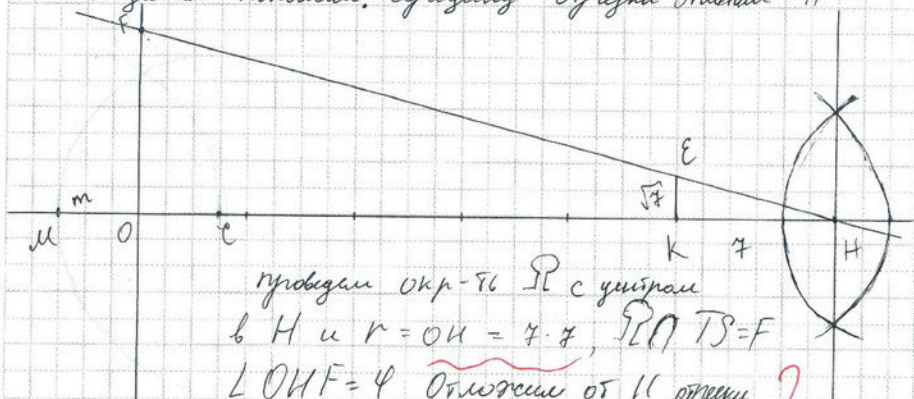 F
E
m
√7
M O C K 7 H
проведем окр-ть Ω с центром
в H и r = OH = 7·7, Ω∩TS=F
∠OHF=φ Отложим от H отрезки ?